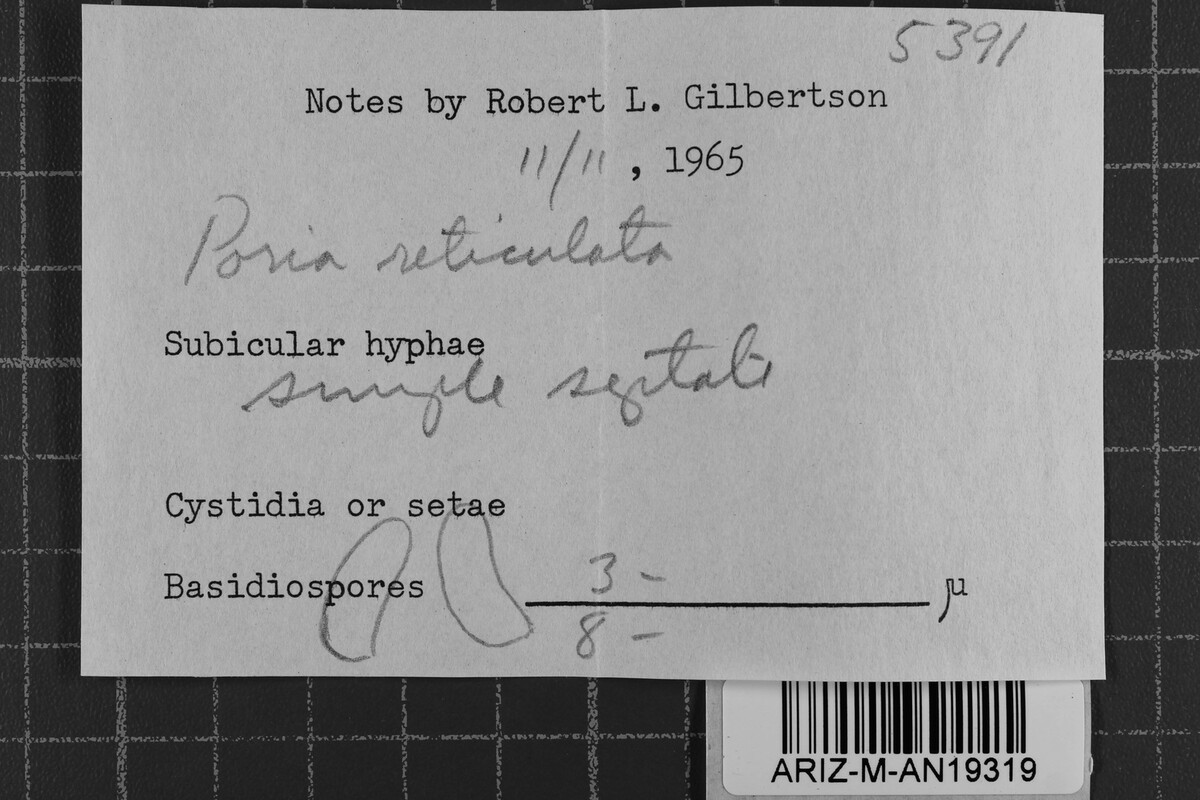 5391
Notes by Robert L. Gilbertson
11/11, 1965
Poria reticulata
Subicular hyphae
simple septate
Cystidia or setae
Basidiospores 3 - µ
8 -
ARIZ-M-AN19319